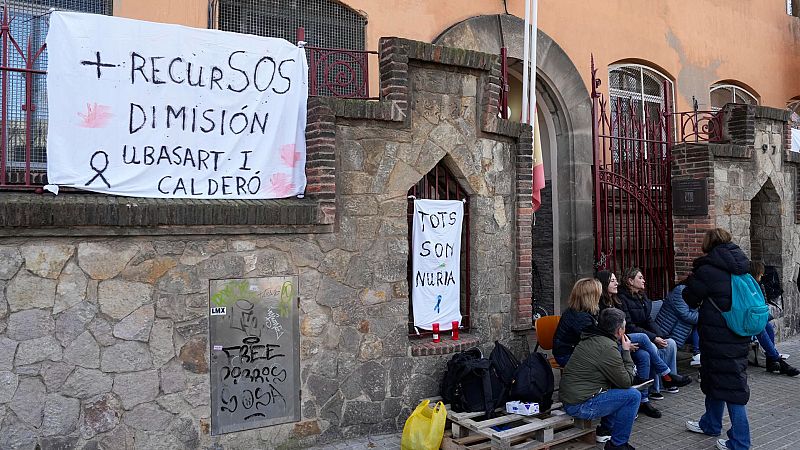 + RECURSOS
DIMISIÓN
UBASART I
CALDERÓ
TOTS
SON
NURIA
LMX
FREE
SOSA